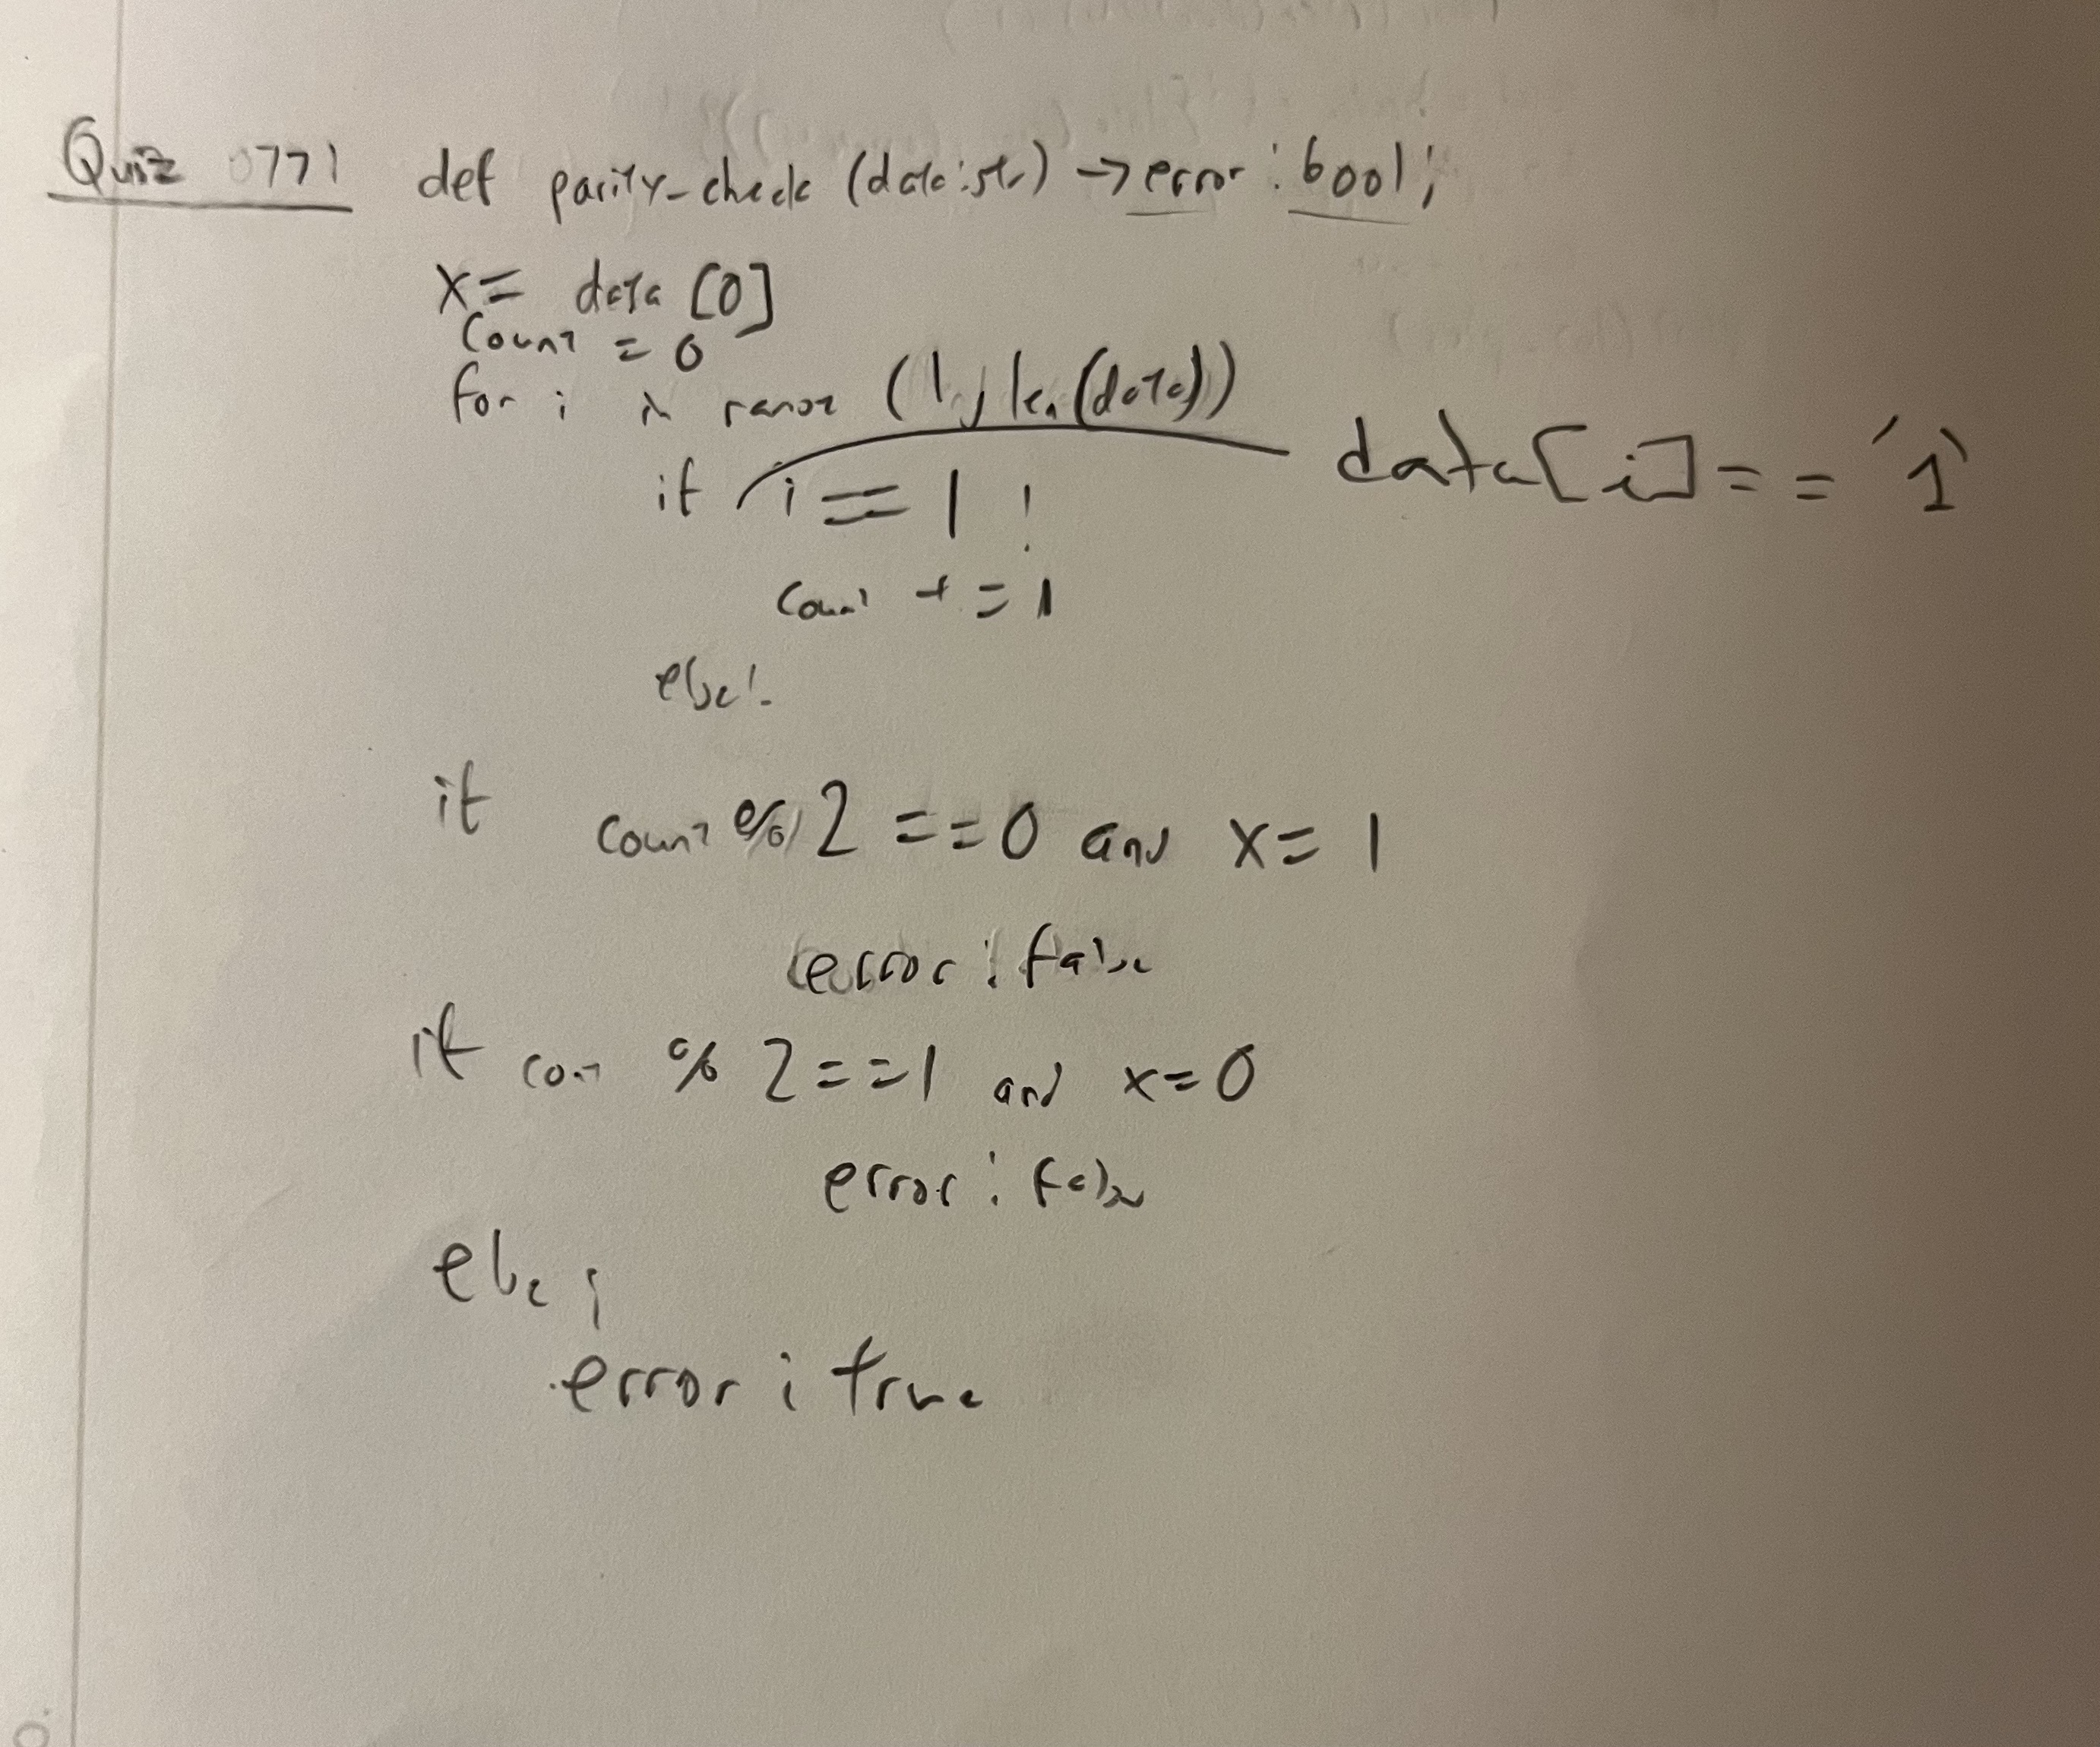 Quiz 0771 def parity-check (data:str) → error : bool;
x= data [0]
Count = 0
for i in range (1, len(data))
if i == 1 : data[i] == '1'
count + = 1
else:
if count % 2 == 0 and x= 1
error : false
if con % 2 == 1 and x=0
error : false
else ;
error ; true